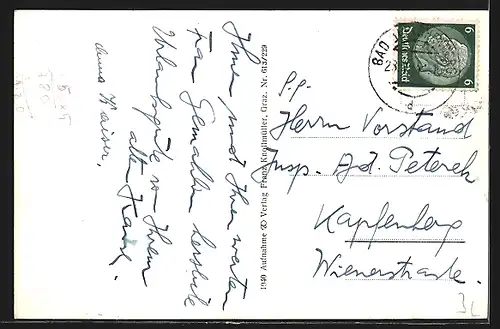 Ihnen und Ihrer werten
Frau Gemahlin herzliche
Urlaubsgrüße von Ihrem
alten Franz.
Anna Kaiser.
1940 Aufnahme u. Verlag Franz Knollmüller, Graz. Nr. 613/229
P.P.
Herrn Vorstand
Insp. Ad. Peterek
Kapfenberg
Wienerstraße.
BAD
Deutsches Reich
6
6
3L